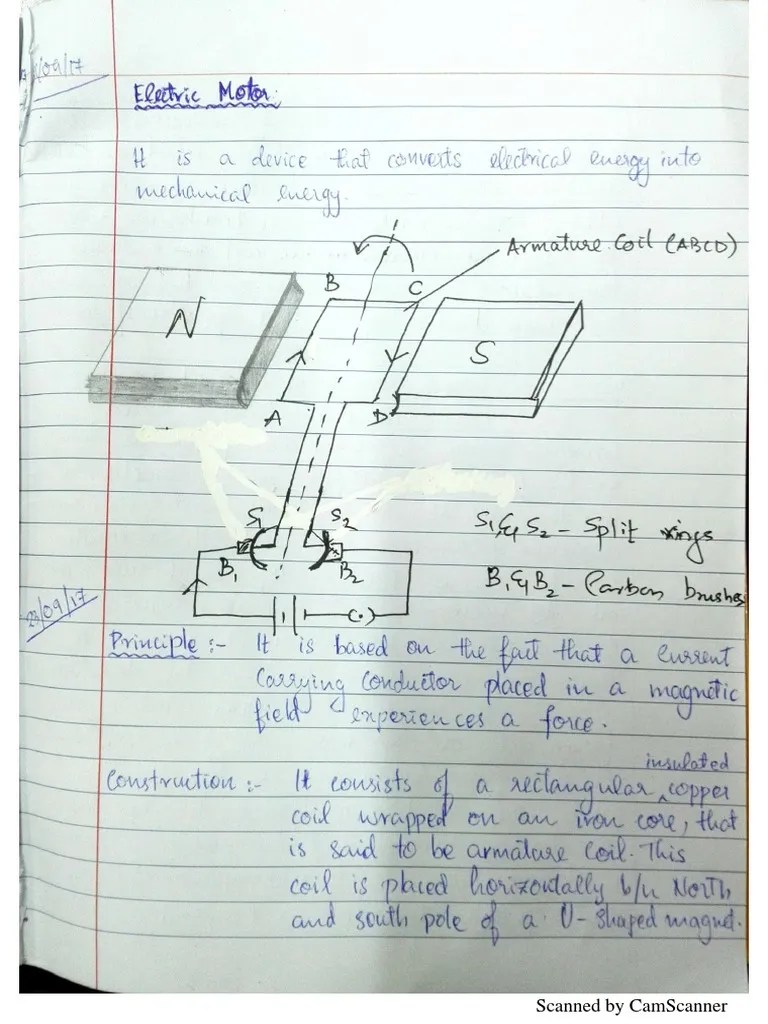 /09/17
Electric Motor:
It is a device that converts electrical energy into
mechanical energy.
Armature Coil (ABCD)
B
C
N
S
A
D
S1
S2
S1, & S2 - Split rings
B1
B2
B1 & B2 - Carbon brushes
23/09/17
Principle :- It is based on the fact that a current
carrying conductor placed in a magnetic
field experiences a force.
insulated
Construction :- It consists of a rectangular ^ copper
coil wrapped on an iron core, that
is said to be armature coil. This
coil is placed horizontally b/w North
and south pole of a U-shaped magnet.
Scanned by CamScanner